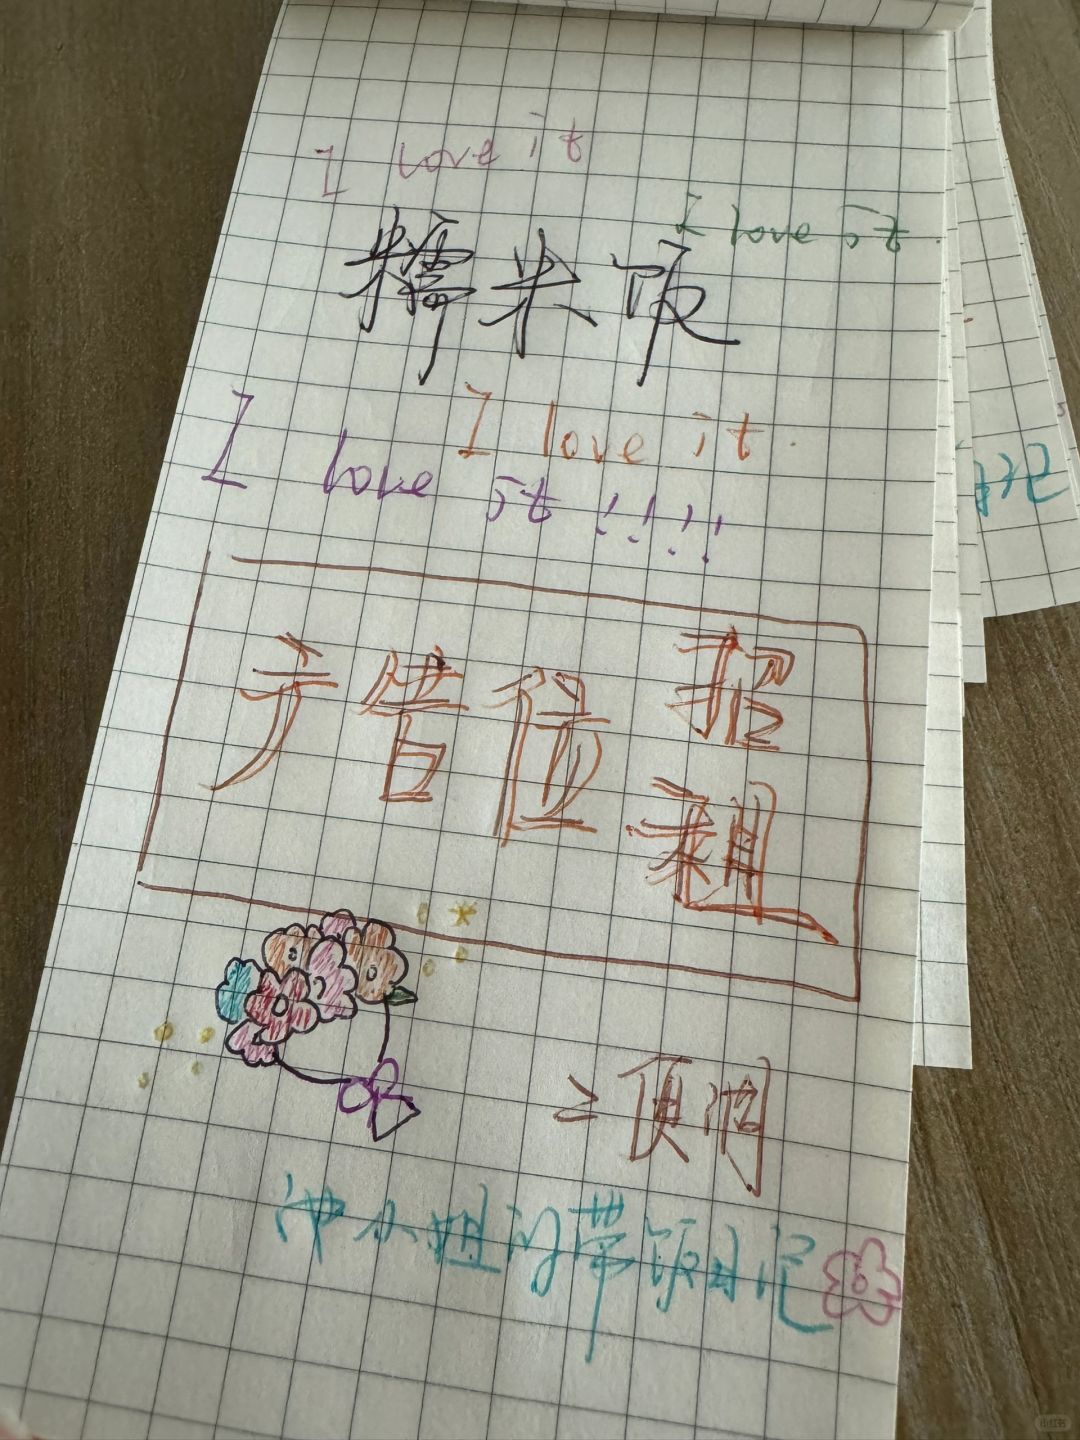 I love it
I love it.
糯米饭
I love it.
I love it!!!!
广告位 招租
二便阁
冲小姐的带饭日记
日记
小红书